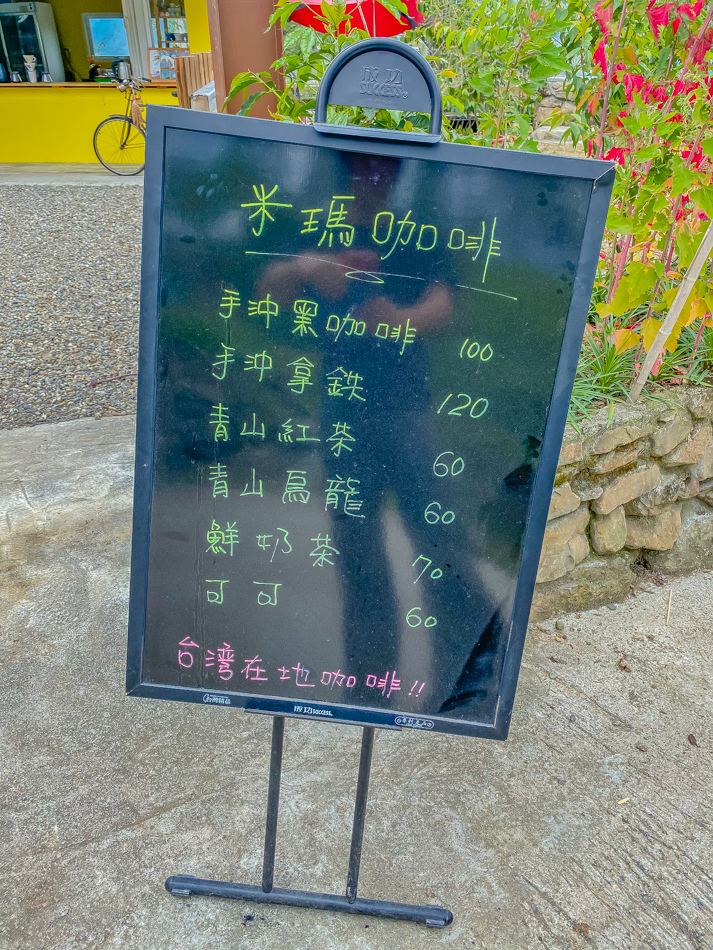 成功
SUCCESS®
米瑪咖啡
手沖黑咖啡 100
手沖拿鉄 120
青山紅茶 60
青山烏龍 60
鮮奶茶 70
可可 60
台灣在地咖啡!!
成功SUCCESS®